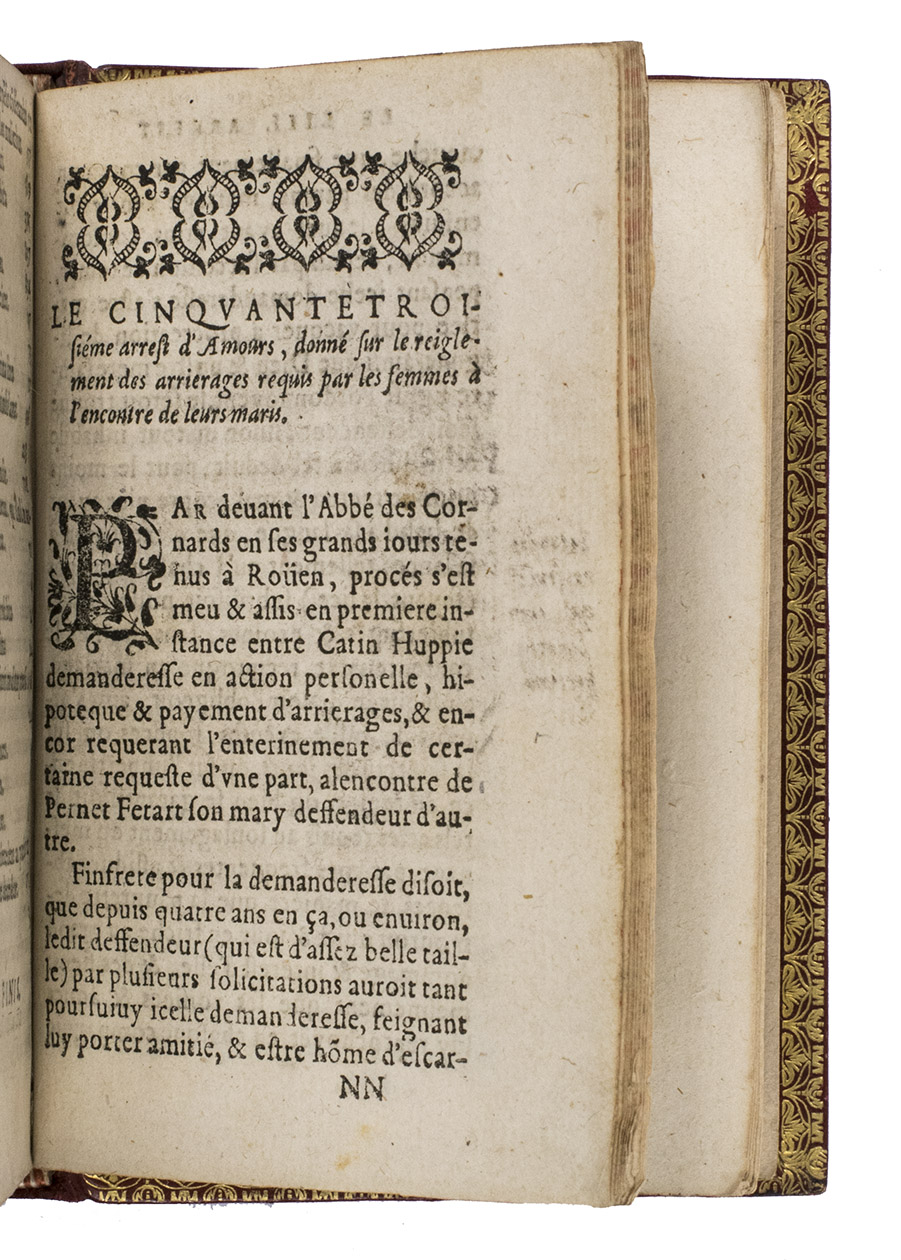 LE CINQVANTÈTROI-
ſiéme arreſt d'Amours, donné ſur le reigle-
ment des arrierages requis par les femmes à
l'encontre de leurs maris.
PAR deuant l'Abbé des Cor-
nards en ſes grands iours tē-
nus à Roüen, procés s'eſt
meu & aſſis en premiere in-
ſtance entre Catin Huppie
demandereſſe en action perſonelle, hi-
poteque & payement d'arrierages, & en-
cor requerant l'enterinement de cer-
taine requeſte d'vne part, alencontre de
Pernet Fetart ſon mary deffendeur d'au-
tre.
Finfrete pour la demandereſſe diſoit,
que depuis quatre ans en ça, ou enuiron,
ledit deffendeur (qui eſt d'aſſez belle tail-
le) par pluſieurs ſolicitations auroit tant
pourſuiuy icelle demandereſſe, feignant
luy porter amitié, & eſtre hōme d'eſcar-
NN